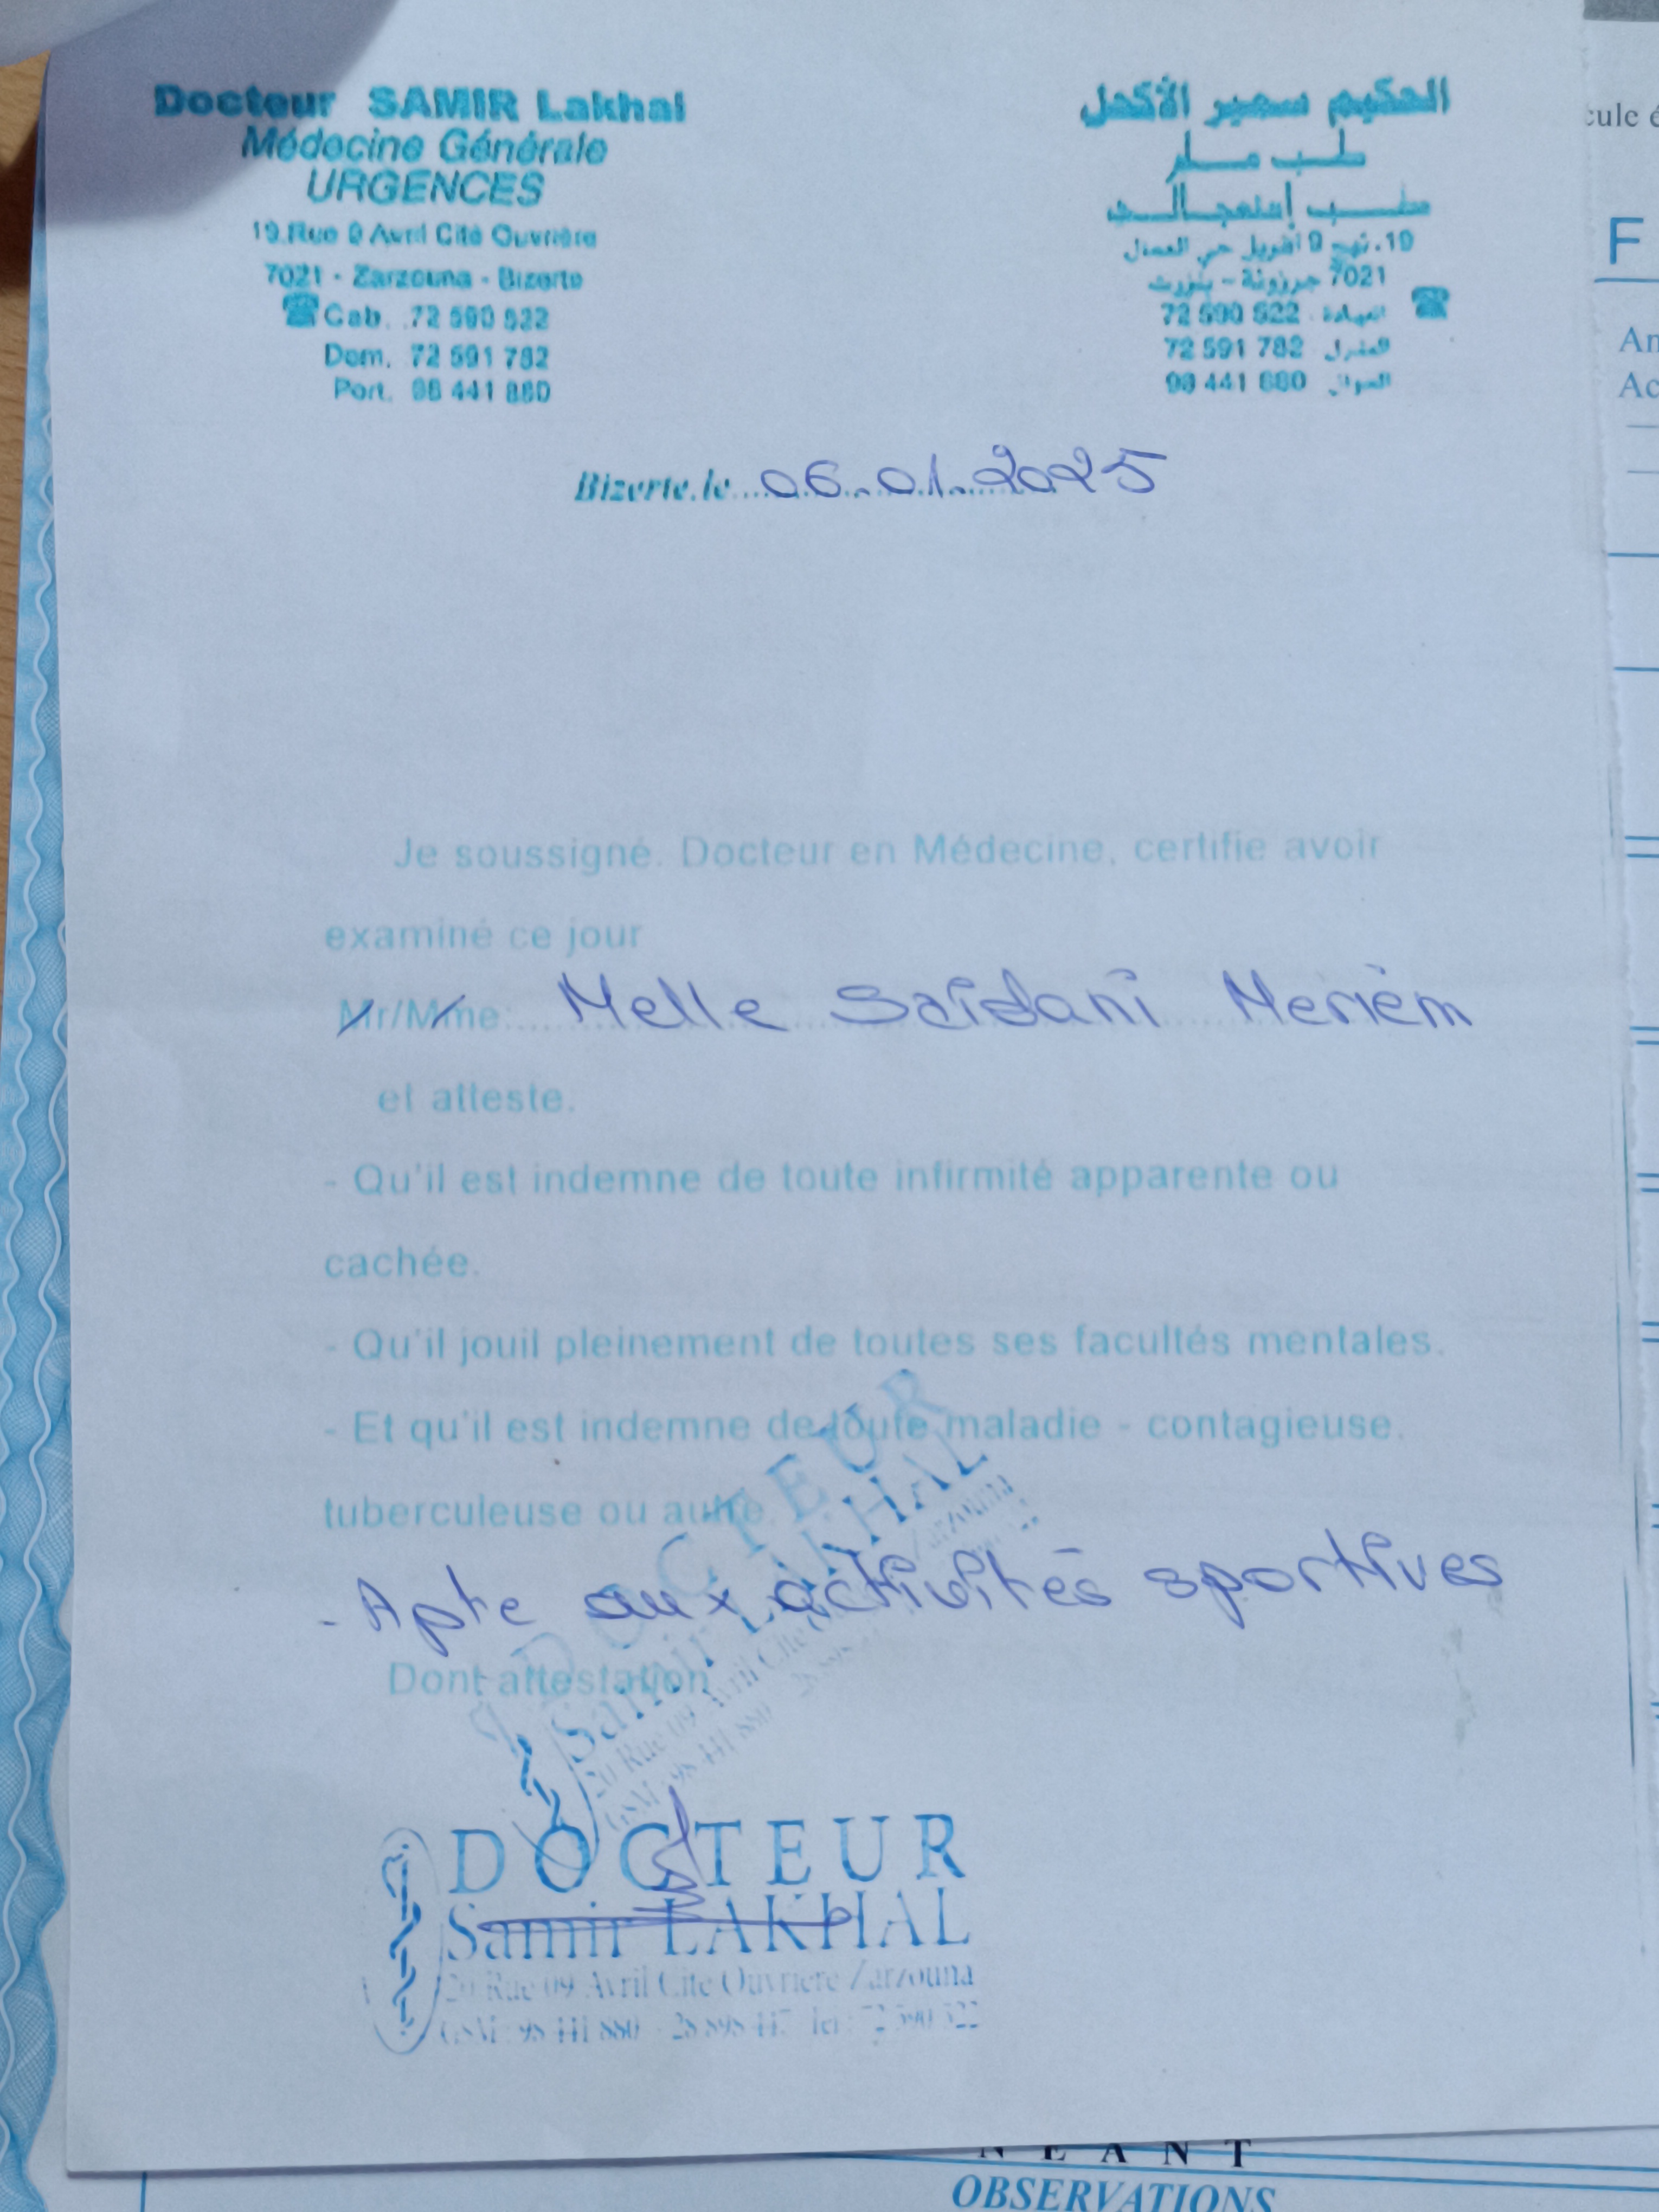 Docteur SAMIR Lakhal
Médecine Générale
URGENCES
19.Rue 9 Avril Cité Ouvrière
7021 - Zarzouna - Bizerte
Cab. 72 590 522
Dom. 72 591 782
Port. 98 441 880
الحكيم سمير الأكحل
طب عام
طب إستعجالي
19.نهج 9 أفريل حي العمال
7021 جرزونة - بنزرت
العيادة 72 590 522
المنزل 72 591 782
الجوال 98 441 880
Bizerte.le 06.01.2025
Je soussigné. Docteur en Médecine, certifie avoir
examiné ce jour
Mr/Mme: Melle Saïdani Meriem
et atteste.
- Qu'il est indemne de toute infirmité apparente ou
cachée.
- Qu'il jouil pleinement de toutes ses facultés mentales.
- Et qu'il est indemne de toute maladie - contagieuse.
tuberculeuse ou autre.
- Apte aux activités sportives
Dont attestation
DOCTEUR
Samir LAKHAL
20 Rue 09 Avril Cite
GSM : 98 441 880
DOCTEUR
Samir LAKHAL
20 Rue 09 Avril Cite Ouvriere Zarzouna
GSM : 98 441 880 - 28 898 447 Tel : 72 590 522
NEANT
OBSERVATIONS
cule é
F
An
Ac